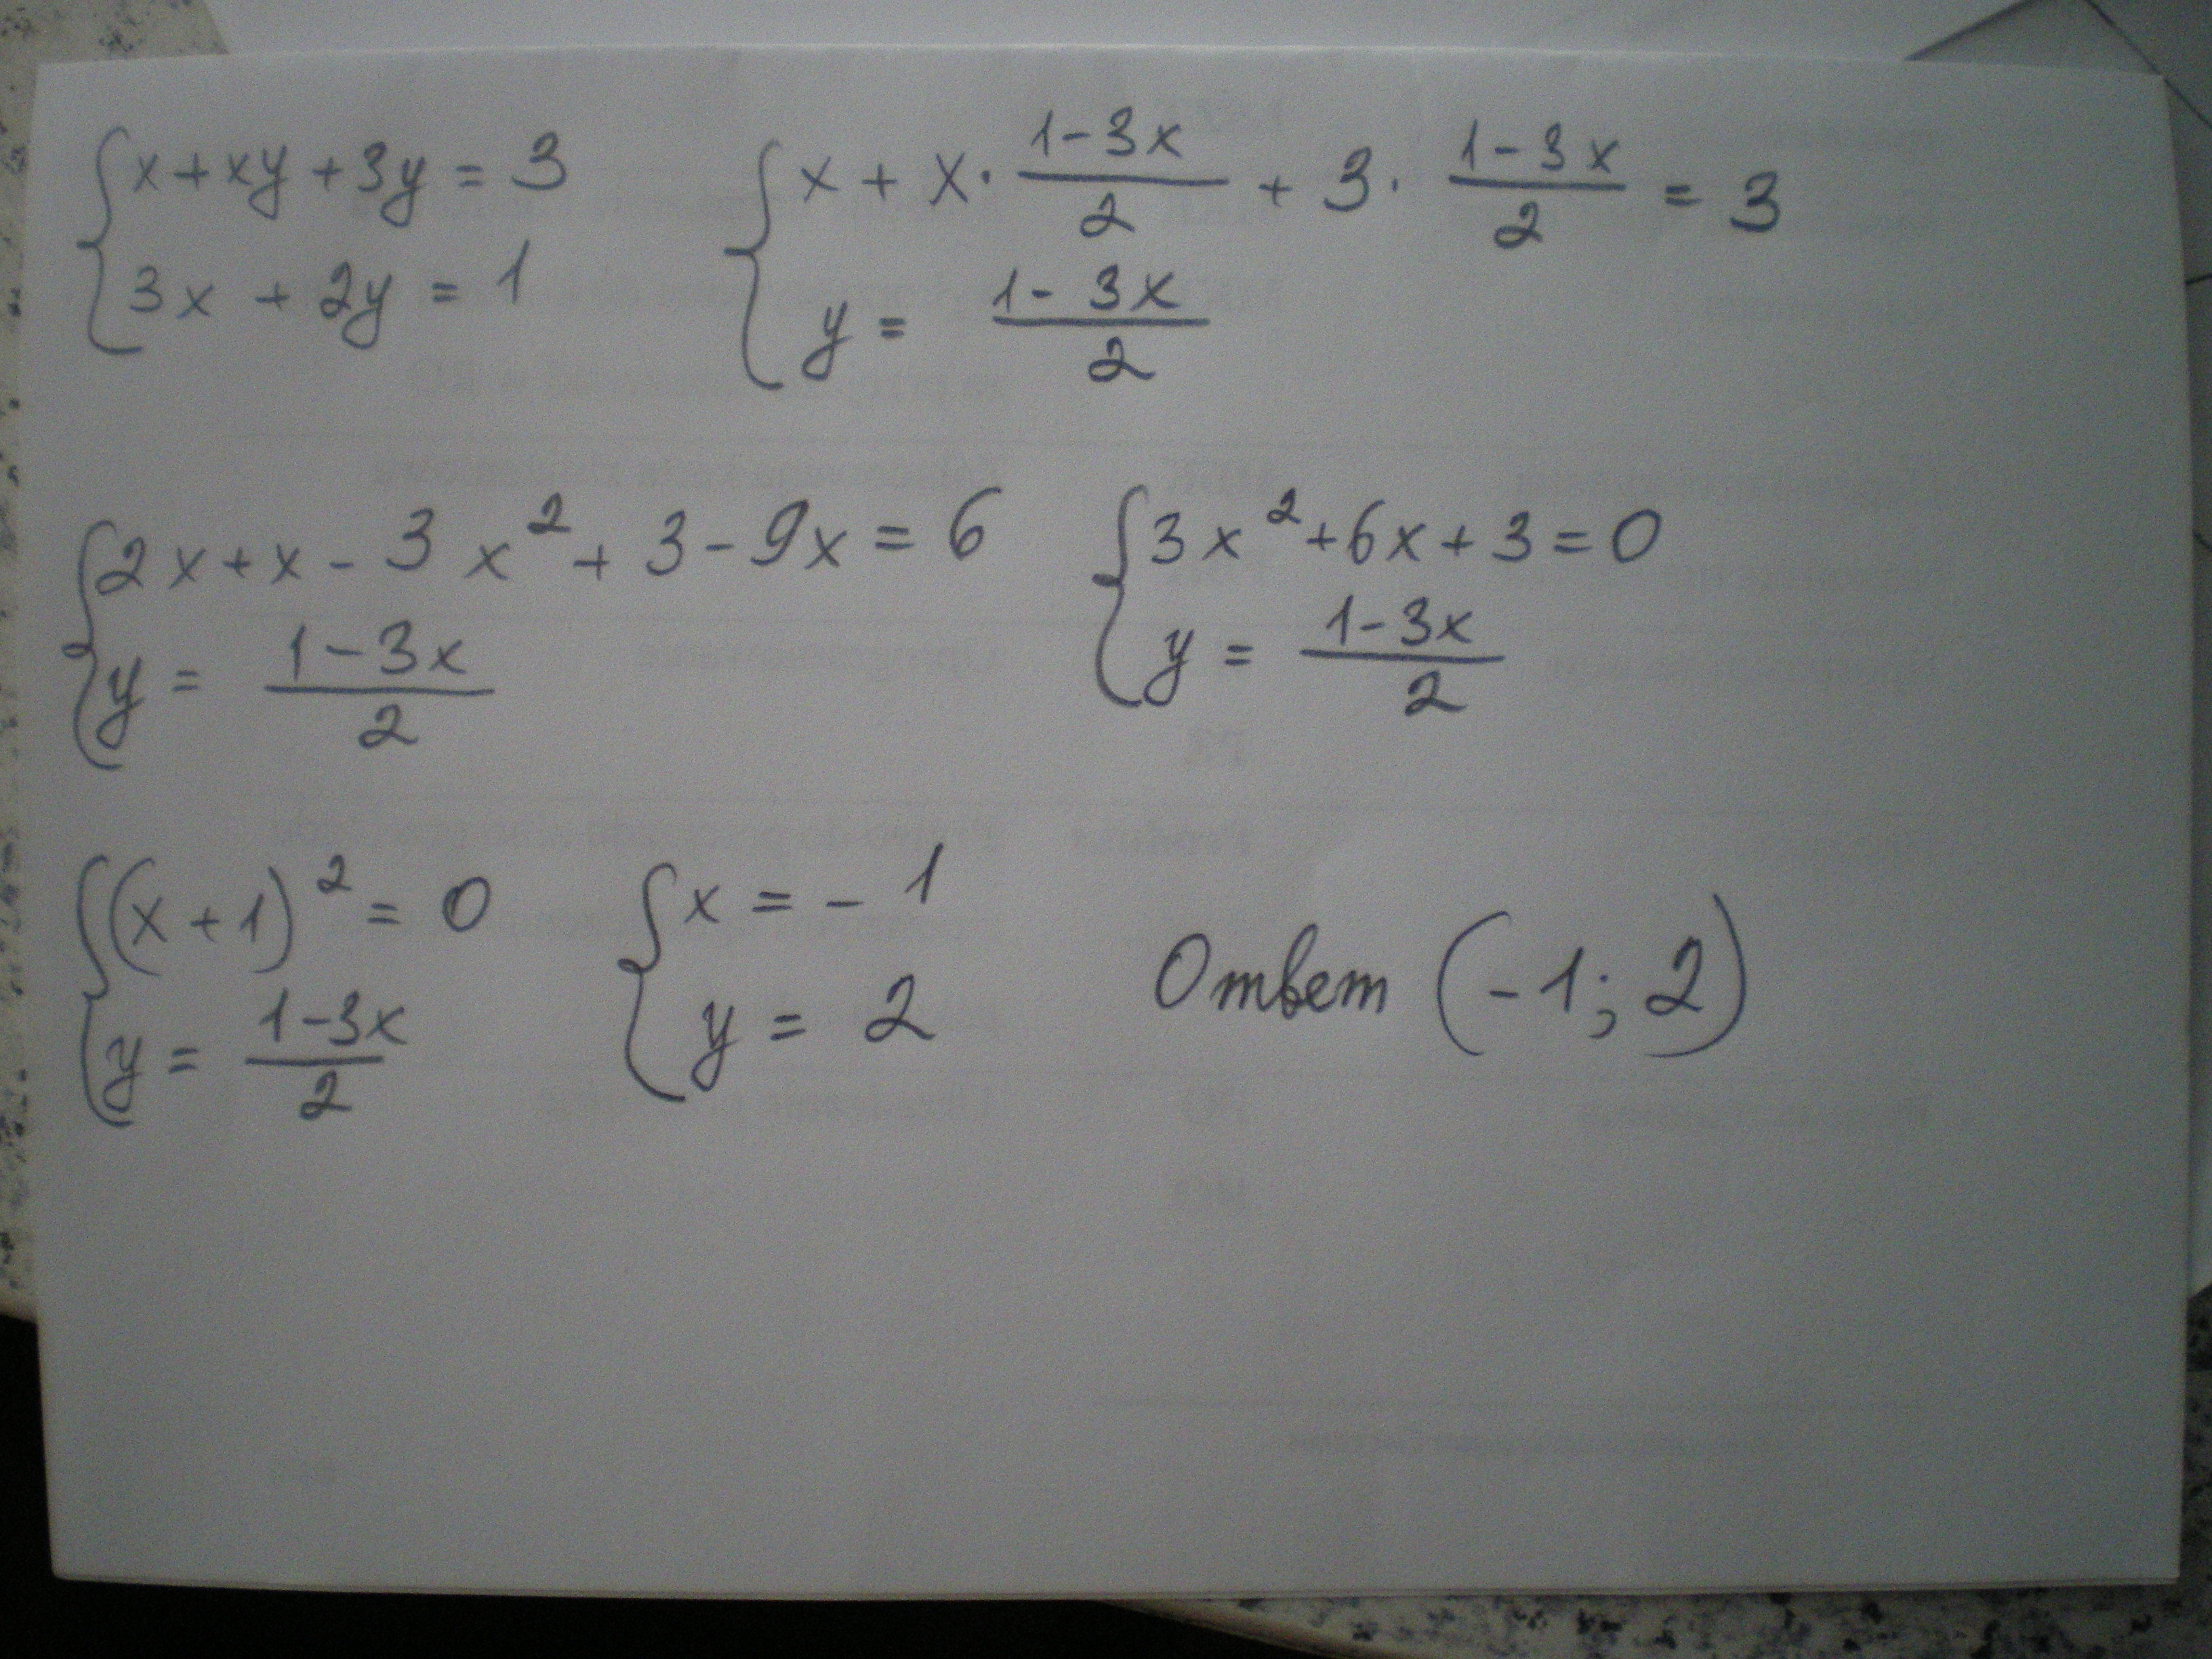 { x + xy + 3y = 3
3x + 2y = 1
{ x + x · (1-3x)/2 + 3 · (1-3x)/2 = 3
y = (1-3x)/2
{ 2x + x - 3x² + 3 - 9x = 6
y = (1-3x)/2
{ 3x² + 6x + 3 = 0
y = (1-3x)/2
{ (x+1)² = 0
y = (1-3x)/2
{ x = -1
y = 2
Ответ (-1; 2)